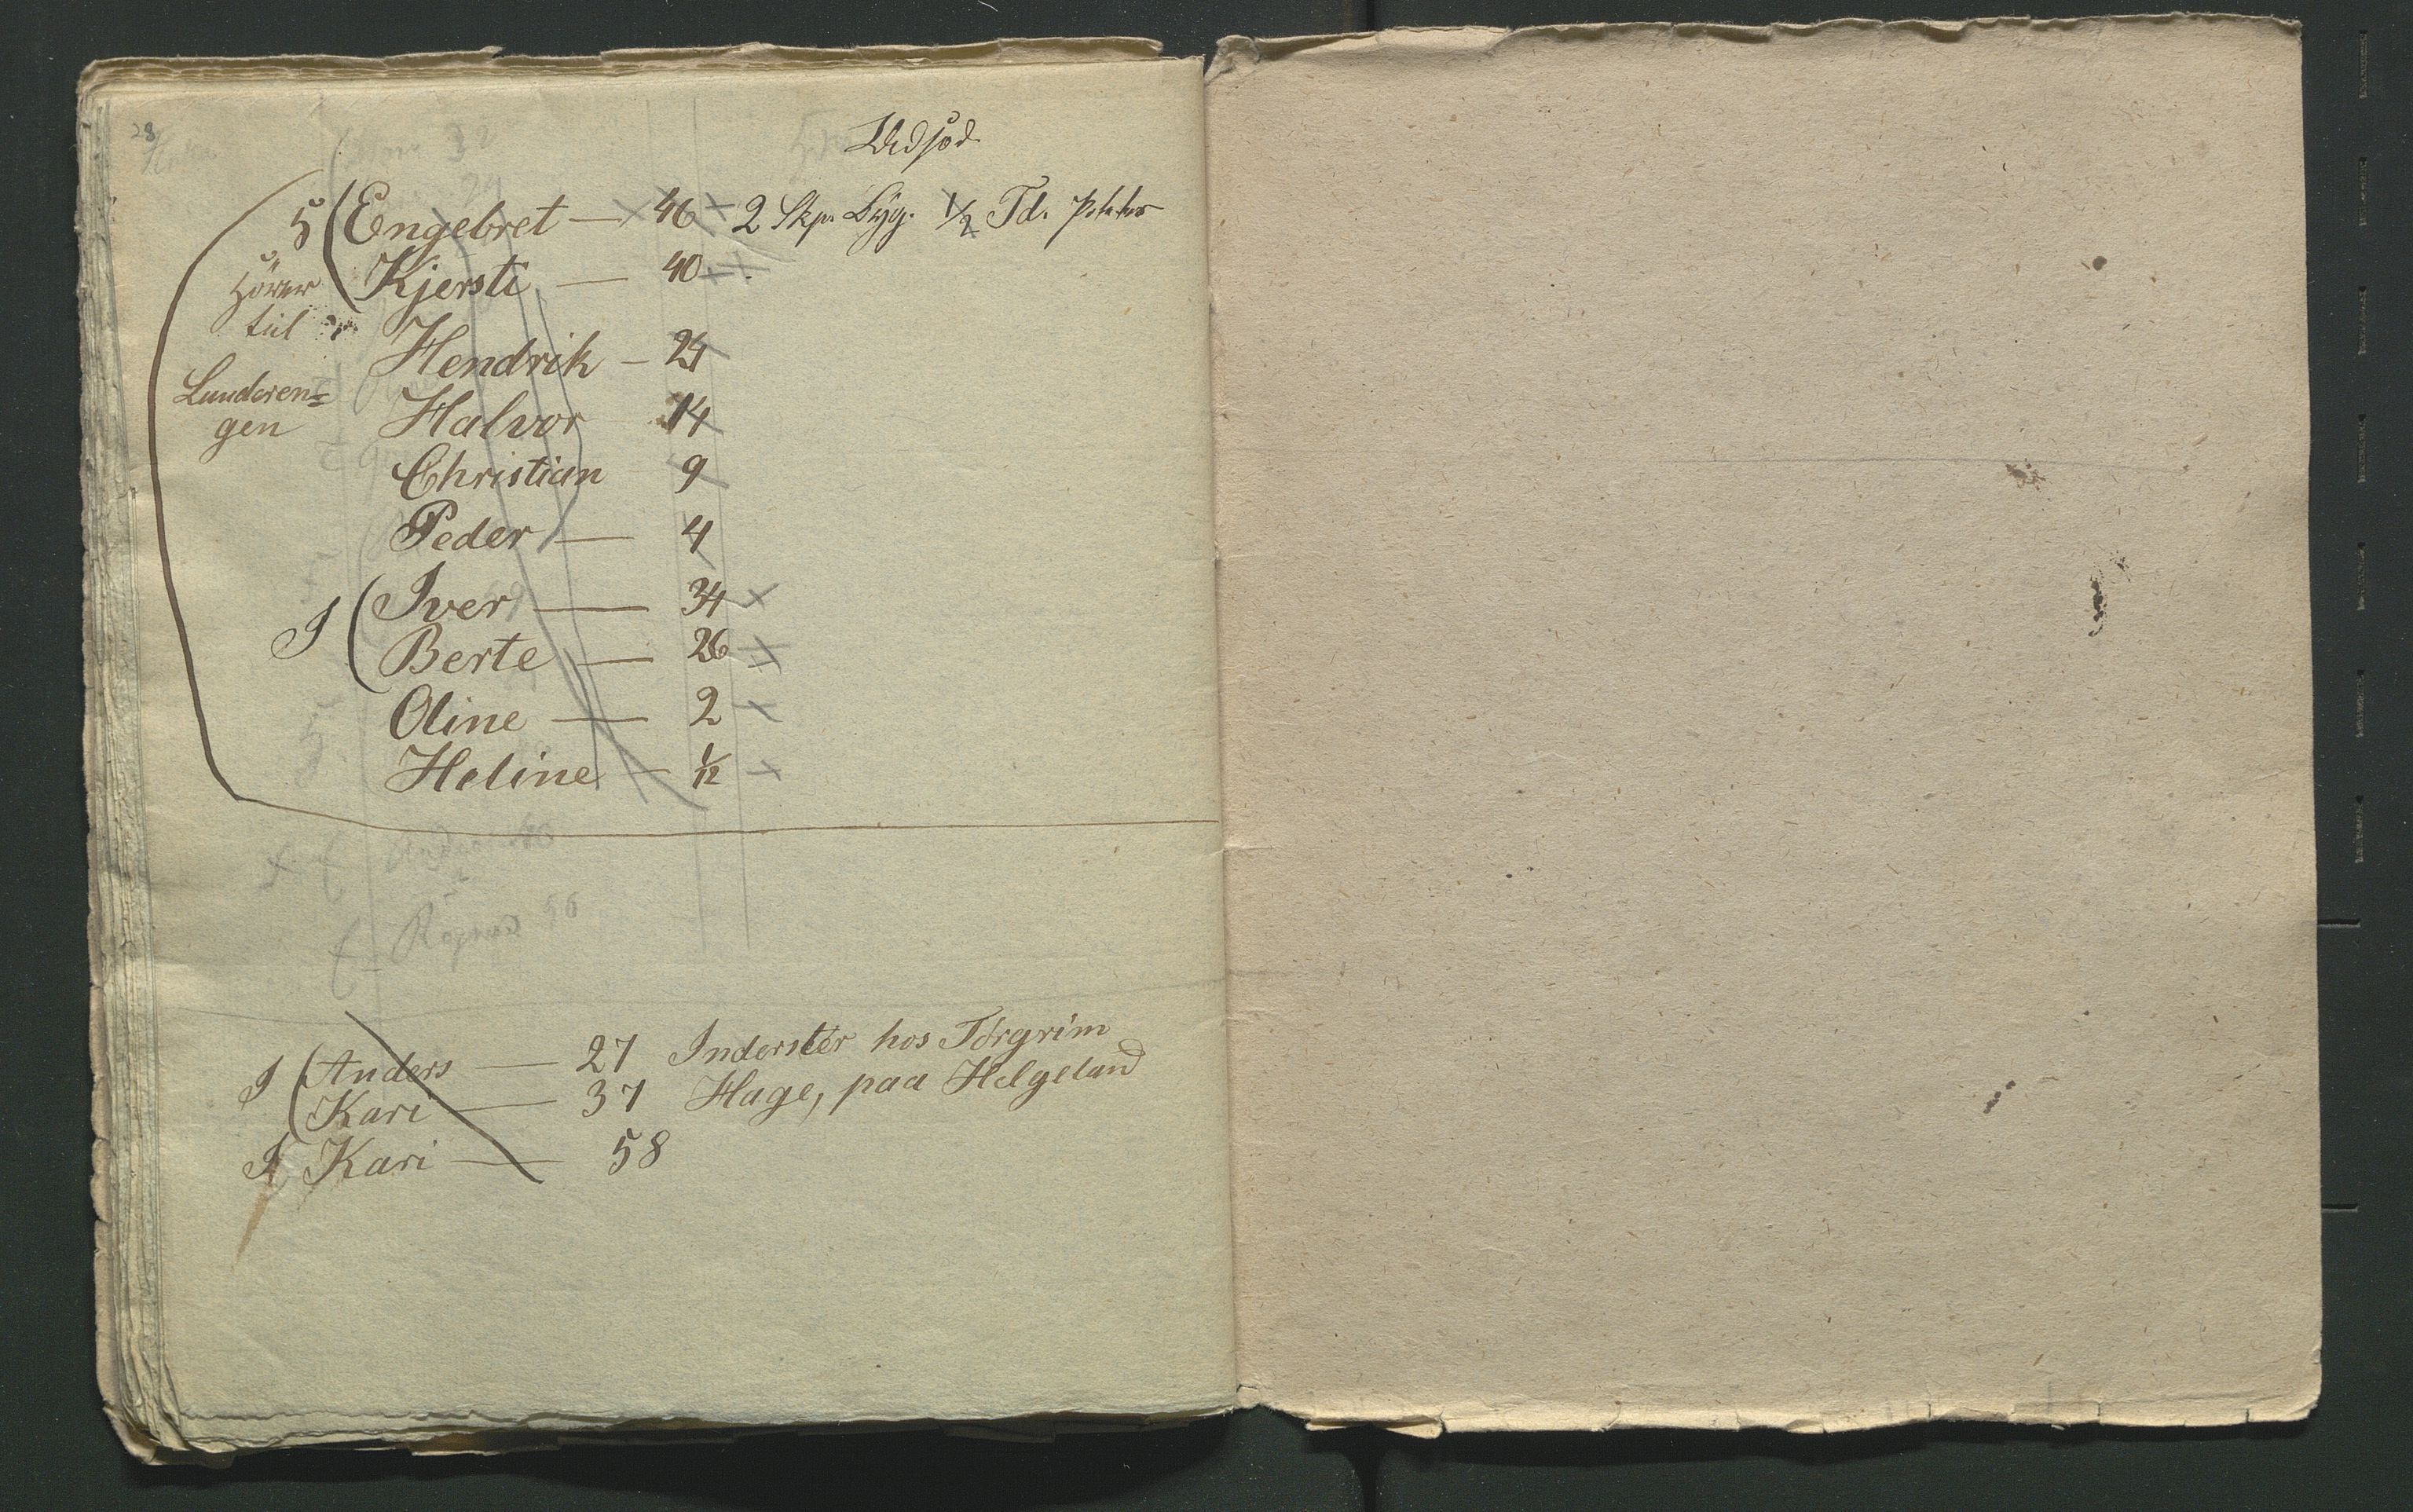 28
Udsæd
5 (Engebret — 46 — 2 Skp. Byg. 1/2 Td. Poteter
(Kjersti — 40
Hører
til
Hendrik — 24
Lunderen=
gen
Halvor 14
Christian 9
Peder — 4
(Iver — 34 x
I
(Berte — 26 x
Oline — 2 x
Heline — 1/12 x
I (Anders — 27 Inderster hos Torgrim
(Kari — 37 Hage, paa Helgeland
I Kari — 58